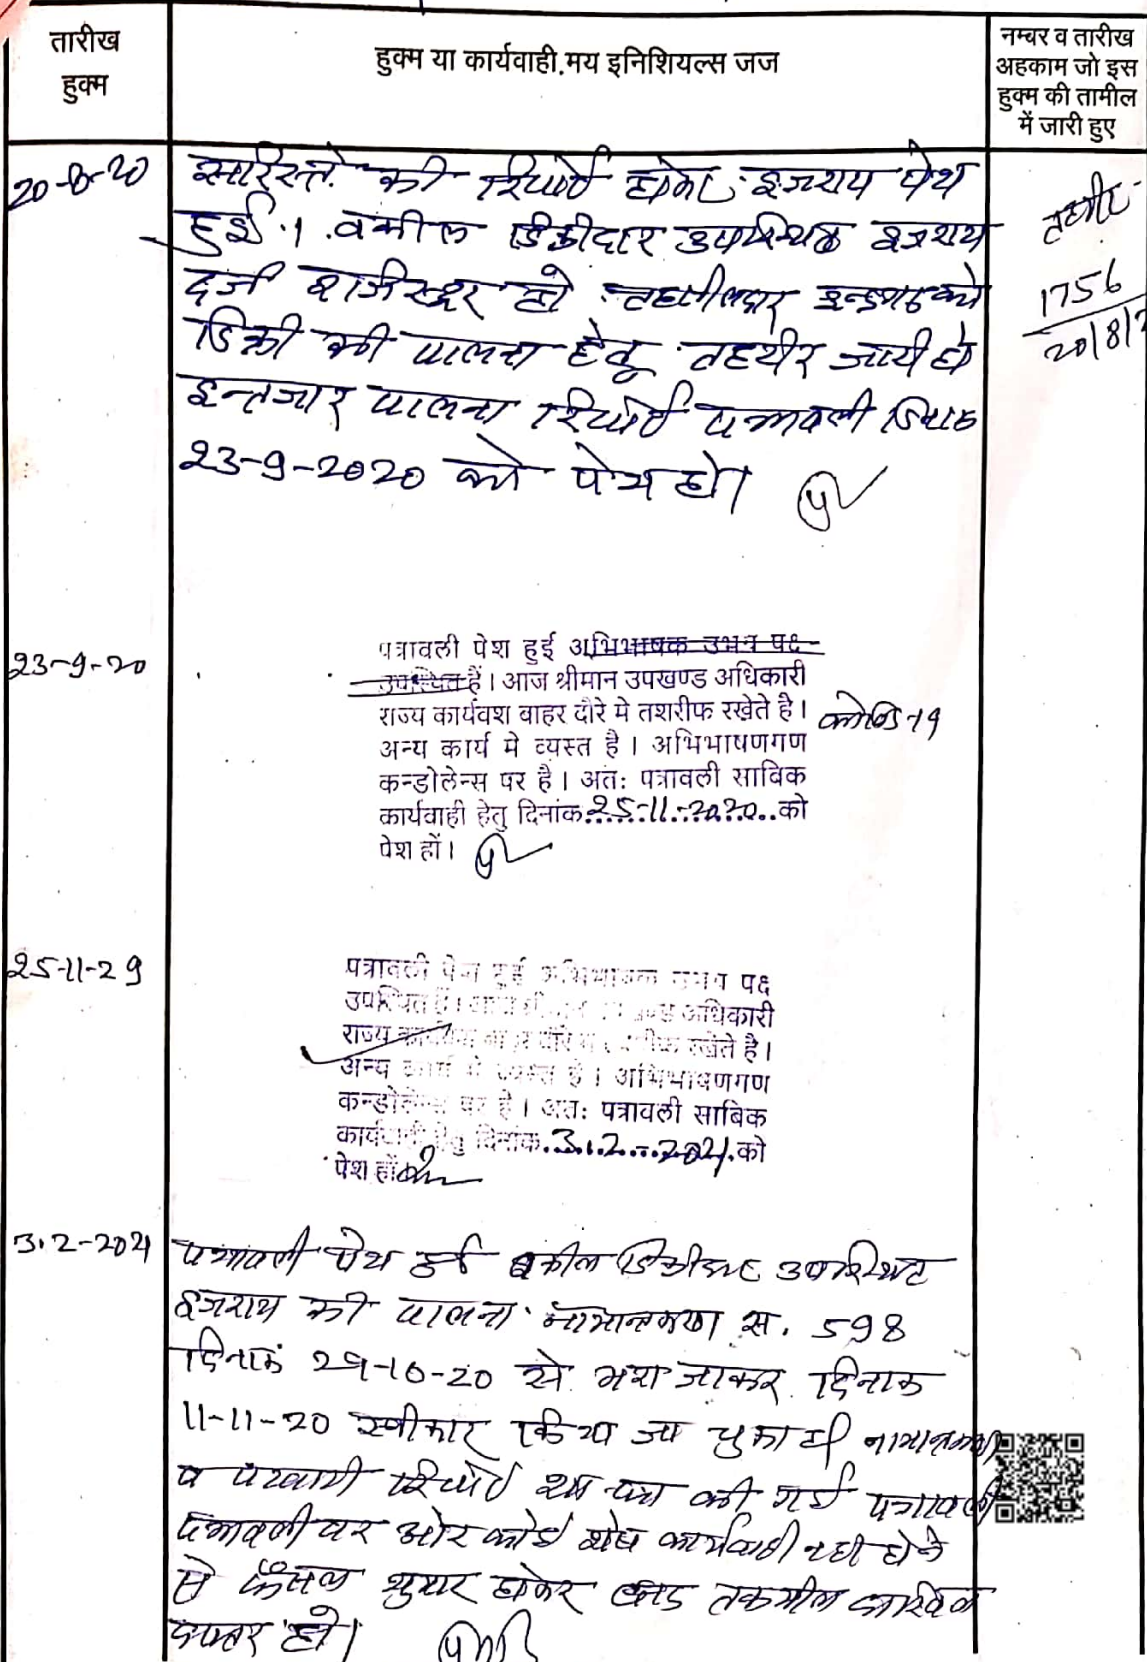 तारीख
हुक्म
हुक्म या कार्यवाही.मय इनिशियल्स जज
नम्बर व तारीख
अहकाम जो इस
हुक्म की तामील
में जारी हुए
20-8-20
की रिपोर्ट होकर इजराय पेश
हुई । वकील डिक्रीदार उपस्थित इजराय
दर्ज रजिस्टर हो तहसीलदार इन्द्रगढ को
डिक्री की पालना हेतू तहरीर जारी हो
इन्तजार पालना रिपोर्ट पत्रावली दिनांक
23-9-2020 को पेश हो।
तहरीर
1756
20/8/2
23-9-20
पत्रावली पेश हुई अभिभाषक उभय पक्ष
उपस्थित हैं। आज श्रीमान उपखण्ड अधिकारी
राज्य कार्यवश बाहर दौरे मे तशरीफ रखेते है।
कोविड-19
अन्य कार्य मे व्यस्त है। अभिभाषणगण
कन्डोलेन्स पर है। अतः पत्रावली साविक
कार्यवाही हेतु दिनांक 25-11-2020 को
पेश हों।
25-11-29
पत्रावली पेश हुई अभिभाषक उभय पक्ष
उपस्थित हैं। अधिकारी
राज्य रखेते है।
अन्य कार्य मे व्यस्त है। अभिभाषणगण
कन्डोलेन्स पर है। अतः पत्रावली साबिक
कार्यवाही हेतु दिनांक 3.2.2021 को
पेश हों
3.2-2021
पत्रावली पेश हुई वकील डिक्रीदार उपस्थित
इजराय की पालना नामान्तकरण स. 598
दिनांक 29-10-20 से भरा जाकर दिनांक
11-11-20 स्वीकार किया जा चुका है नामान्तकरण
व पटवारी रिपोर्ट की गई पत्रावली
पत्रावली पर ओर कोई शेष कार्यवाही नही होने
से फैसल शुमार होकर बाद तकमील दाखिल
दफ्तर हो।